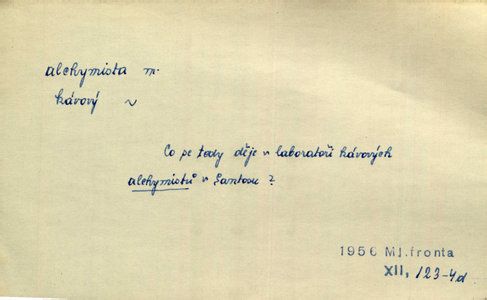 alchymista m.
kávový ~
Co se tedy děje v laboratoři kávových
alchymistů v Santosu?
1956 Ml.fronta
XII, 123-4d